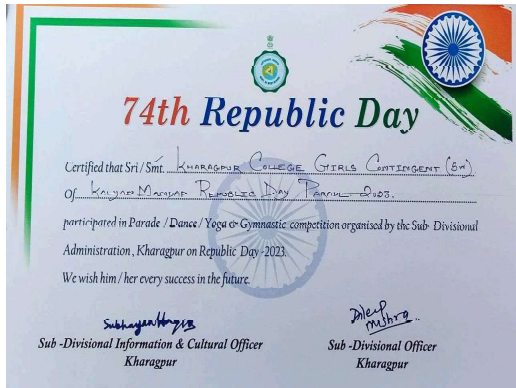 74th Republic Day
Certified that Sri / Smt. KHARAGPUR COLLEGE GIRLS CONTINGENT (SW)
Of REPUBLIC DAY 2023.
participated in Parade / Dance / Yoga & Gymnastic competition organised by the Sub- Divisional
Administration, Kharagpur on Republic Day -2023.
We wish him / her every success in the future.
Dileep
Mishra
Sub -Divisional Information & Cultural Officer
Sub -Divisional Officer
Kharagpur
Kharagpur